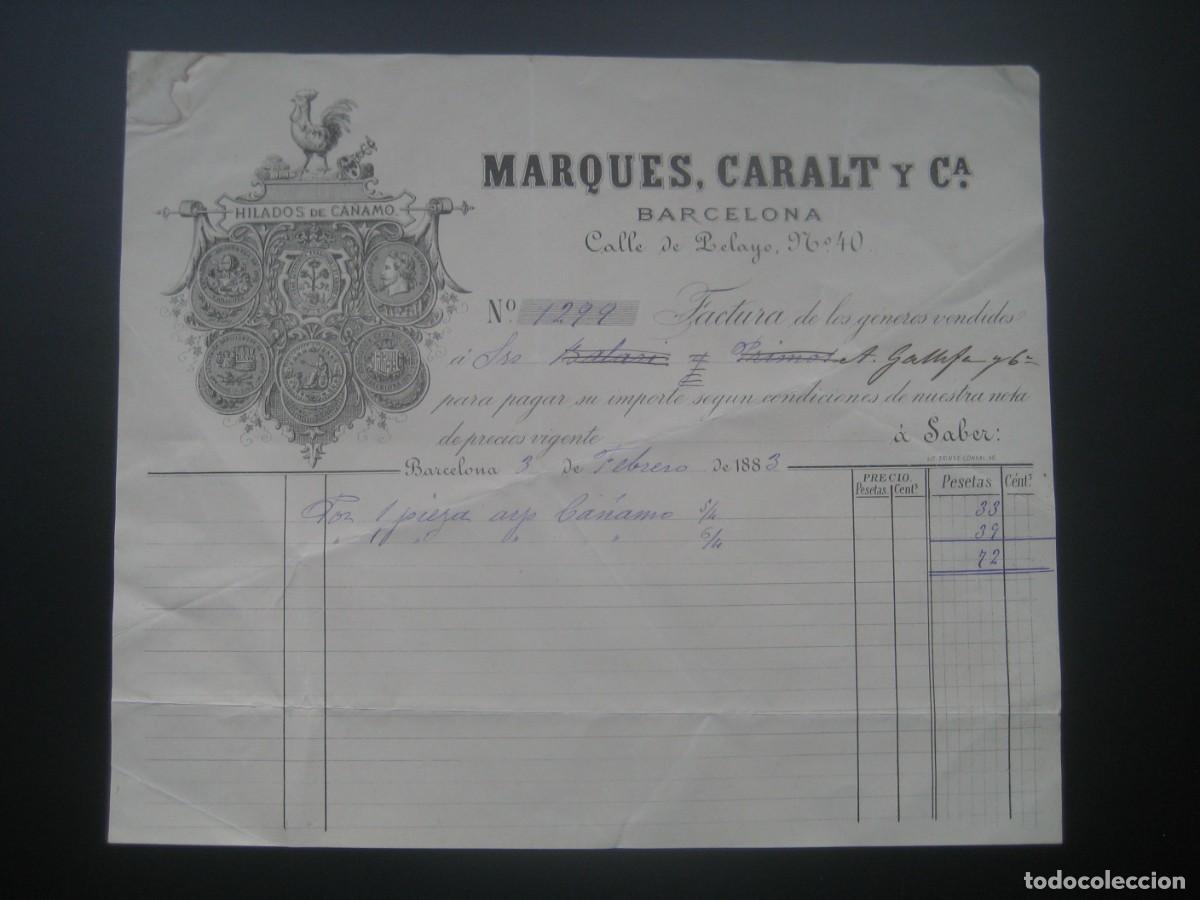 HILADOS DE CAÑAMO.
MARQUES, CARALT Y CA.
BARCELONA
Calle de Pelayo, No 40.
No. 1299 Factura de los géneros vendidos
á Srs Balari y Primos A. y Ca
para pagar su importe segun condiciones de nuestra nota
de precios vigente á Saber:
Barcelona 3 de Febrero de 1883
PRECIO.
Pesetas Cents. Pesetas Cents.
Por 1 pieza arp Cáñamo 5/4 33
" 1 " " " 6/4 39
72
todocoleccion